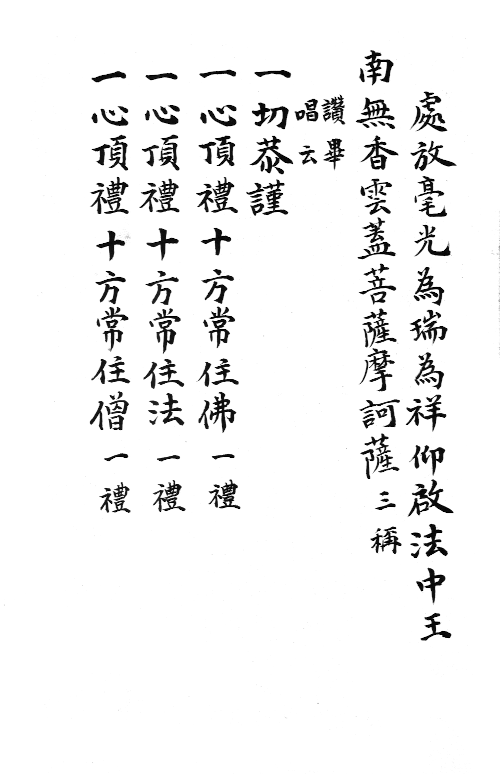 處放毫光為瑞為祥仰啟法中王
南無香雲蓋菩薩摩訶薩三稱
讚畢
唱云
一切恭謹
一心頂禮十方常住佛一禮
一心頂禮十方常住法一禮
一心頂禮十方常住僧一禮